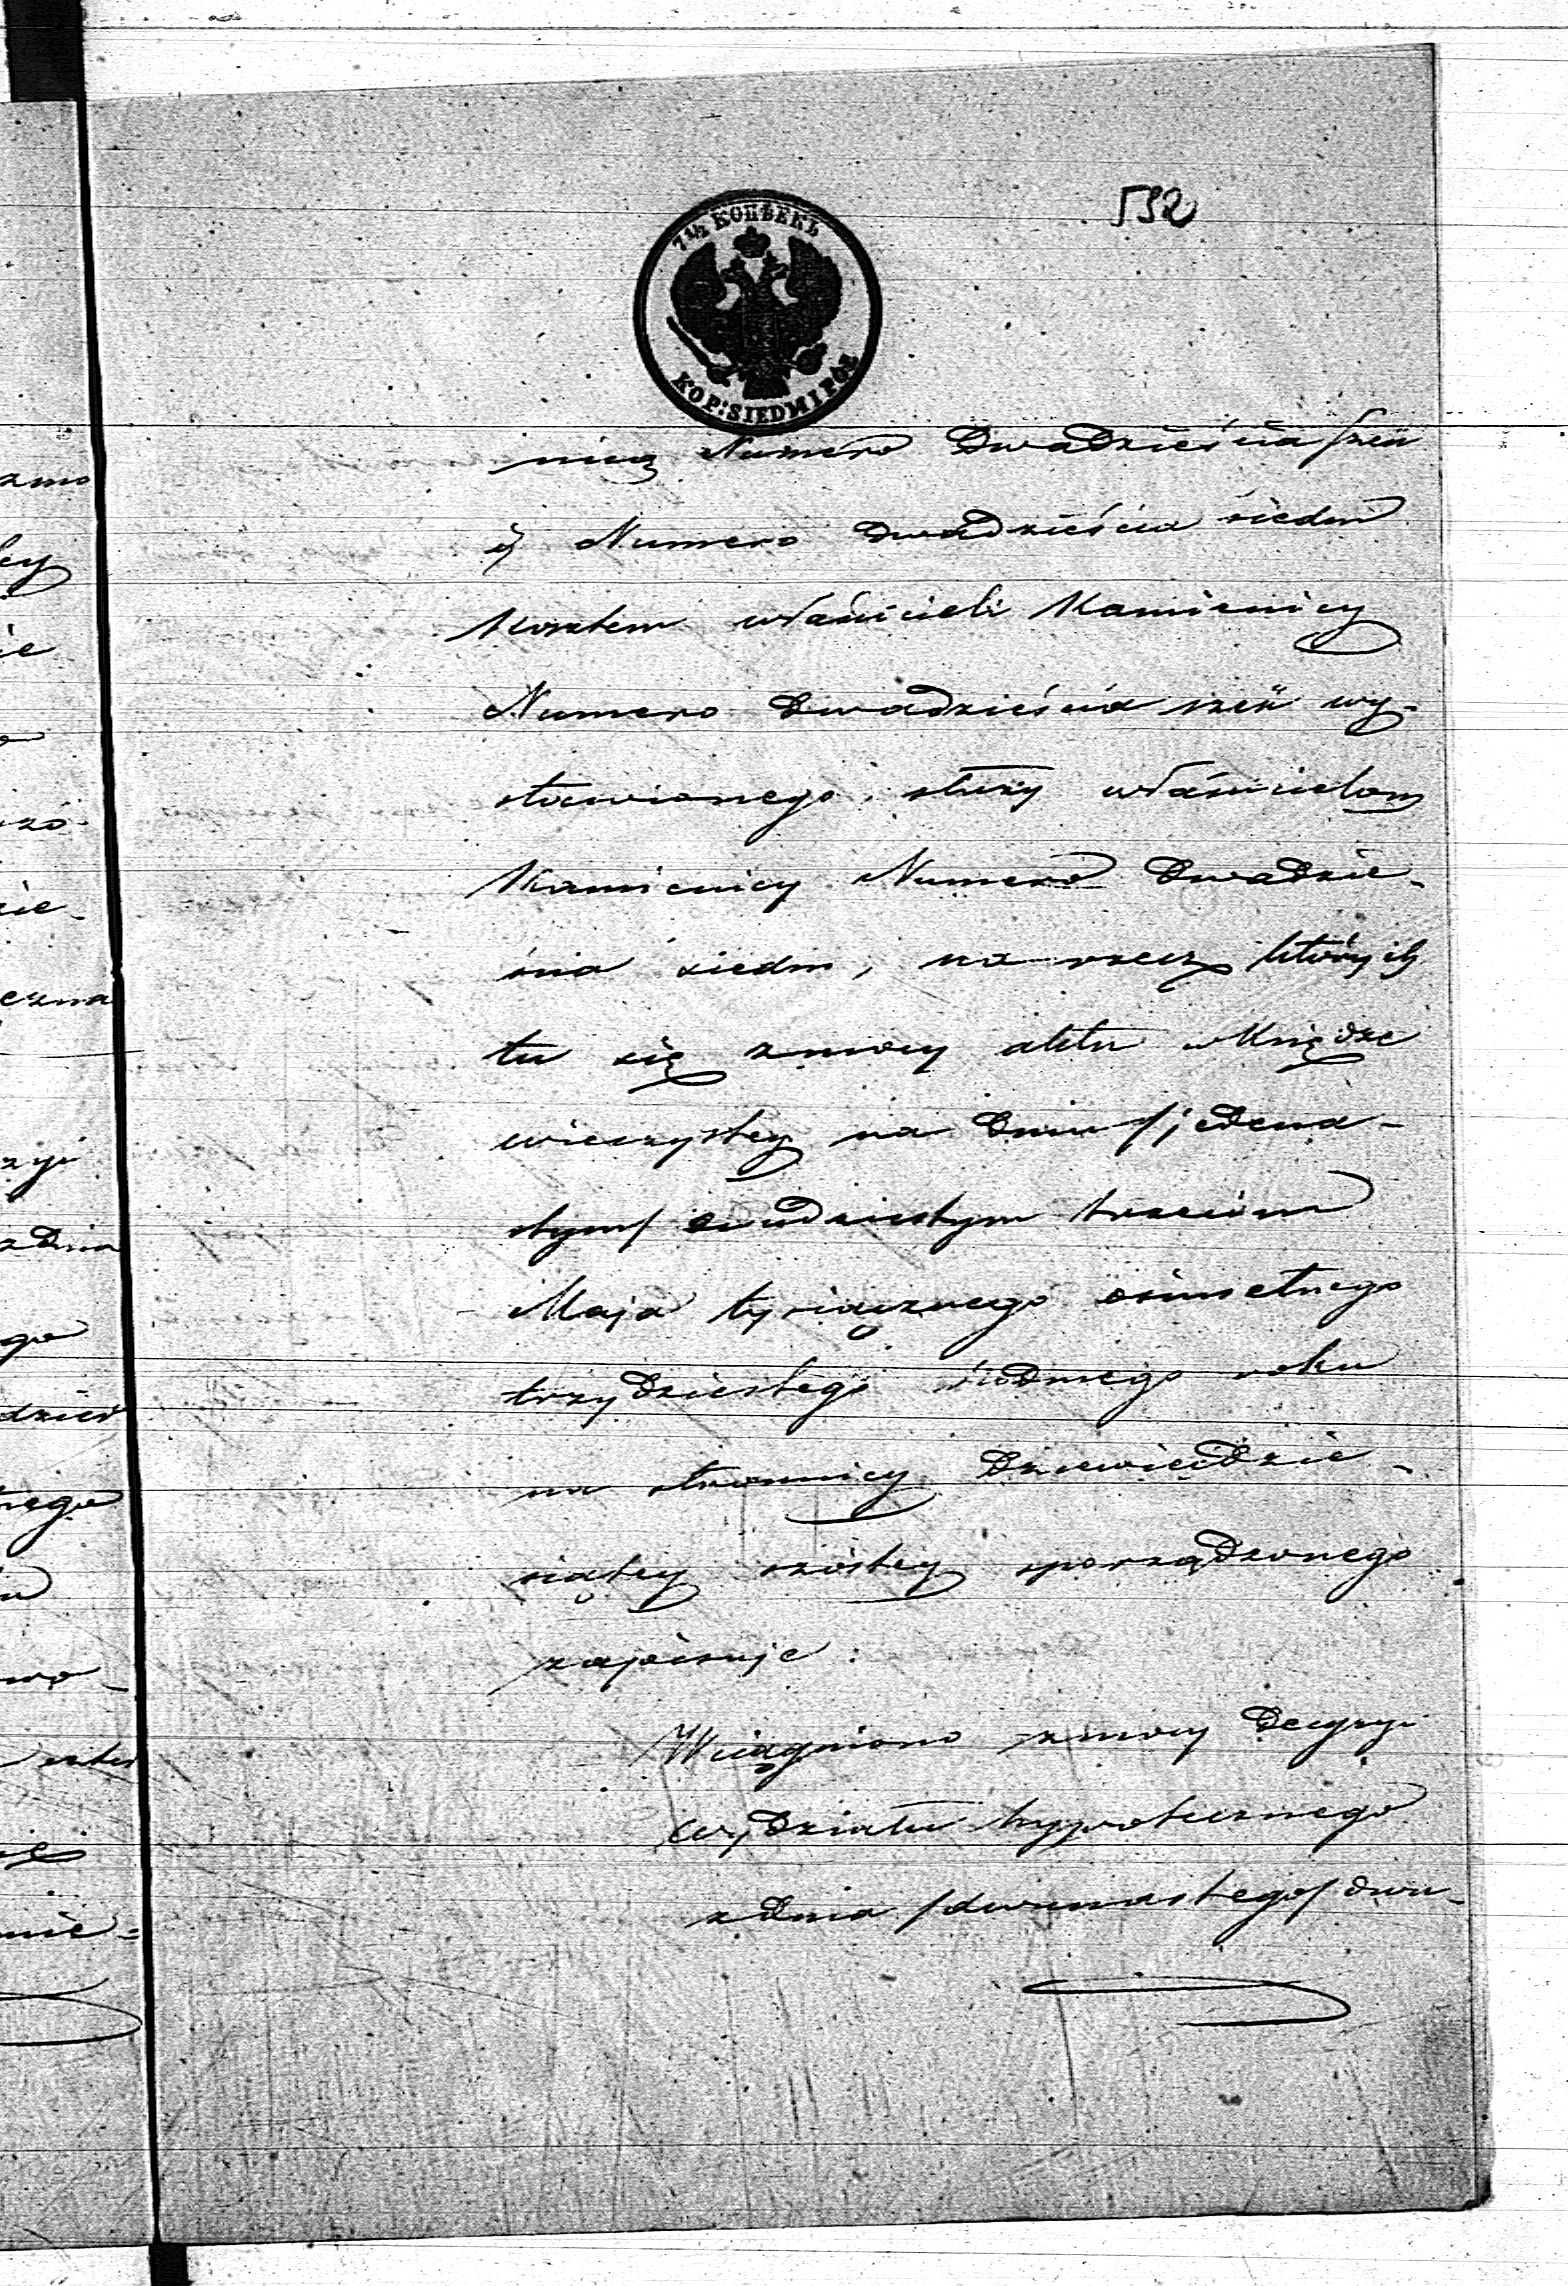 532
7 1/2 КОПѢЕКЪ
KOP: SIEDM I PÓŁ
nicą Numero Dwadzieścia sześć
zmo
i Numero dwadzieścia siedm
Kosztem właścicieli Kamienicy
ie
Numero Dwadzieścia sześć wy-
stawionego, służy właścicielom
Kamienicy Numero Dwadzie-
ścia siedm, na rzecz których
tu się z mocy aktu w Księdze
wieczystey na dniu /jedena-
stym/ dwudziestym trzecim
zdnia
Maja tysiącznego ośmsetnego
trzydziestego siódmego roku
na stronnicy Dziewięćdzie-
siątey szóstey sporządzonego
zapisuje:
Wciągniono z mocy Decyzyi
Wydziału hypotecznego
z dnia /dwunastego/ dwu-